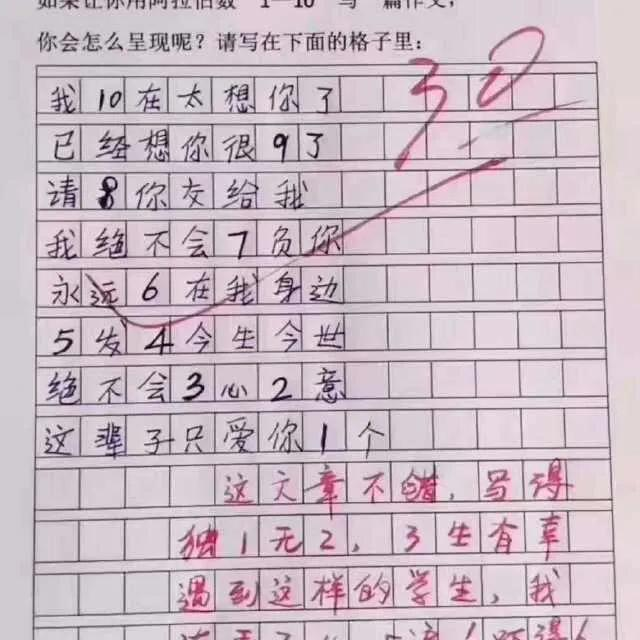 如果让你用阿拉伯数 1—10 写 篇作文，
你会怎么呈现呢？请写在下面的格子里：
30
我10在太想你了
已经想你很9了
请8你交给我
我绝不会7负你
永远6在我身边
5发4今生今世
绝不会3心2意
这辈子只爱你1个
这文章不错，写得
独1无2，3生有幸
遇到这样的学生，我